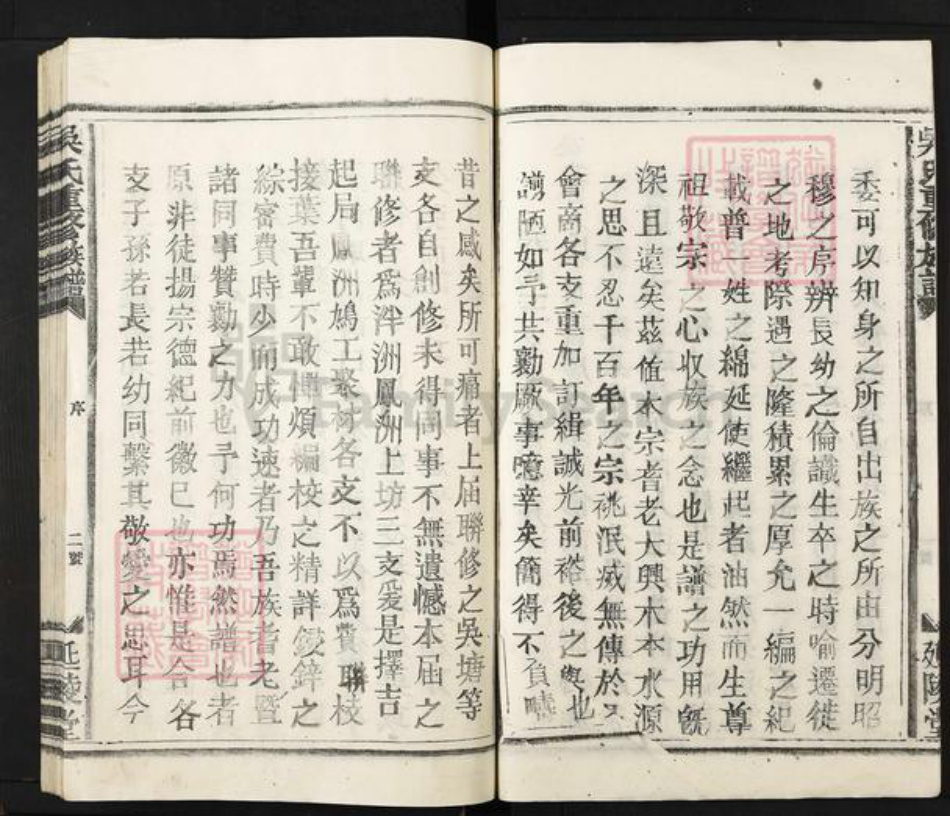 委可以知身之所自出族之所由分明昭
穆之序辨長幼之倫識生卒之時喻遷徙
之地考際遇之隆積累之厚允一編之紀
載普一姓之綿延使繼起者油然而生尊
祖敬宗之心收族之念也是譜之功用旣
深且遠矣茲值本宗耆老大興木本水源
之思不忍千百年之宗祧泯滅無傳於
會商各支重加訂緝誠光前裕後之輿也
謭陋如予共勷厥事噫幸矣簡得不負疇
昔之感矣所可痛者上屆聯修之吳塘等
支各自創修未得同事不無遺憾本屆之
聯修者爲泮洲鳳洲上坊三支爰是擇吉
起局鳳洲鳩工聚材各支不以爲費聯枝
接葉吾輩不敢憚煩編校之精詳鋟鋅之
綜密費時少而成功速者乃吾族耆老暨
諸同事贊勷之力也予何功焉然譜也者
原非徒揚宗德紀前徽巳也亦惟是合各
支子孫若長若幼同繫其敬愛之思耳今
吳氏重修族譜
序
二號
延陵堂
吳氏重修族譜
延陵堂
FamilySearch